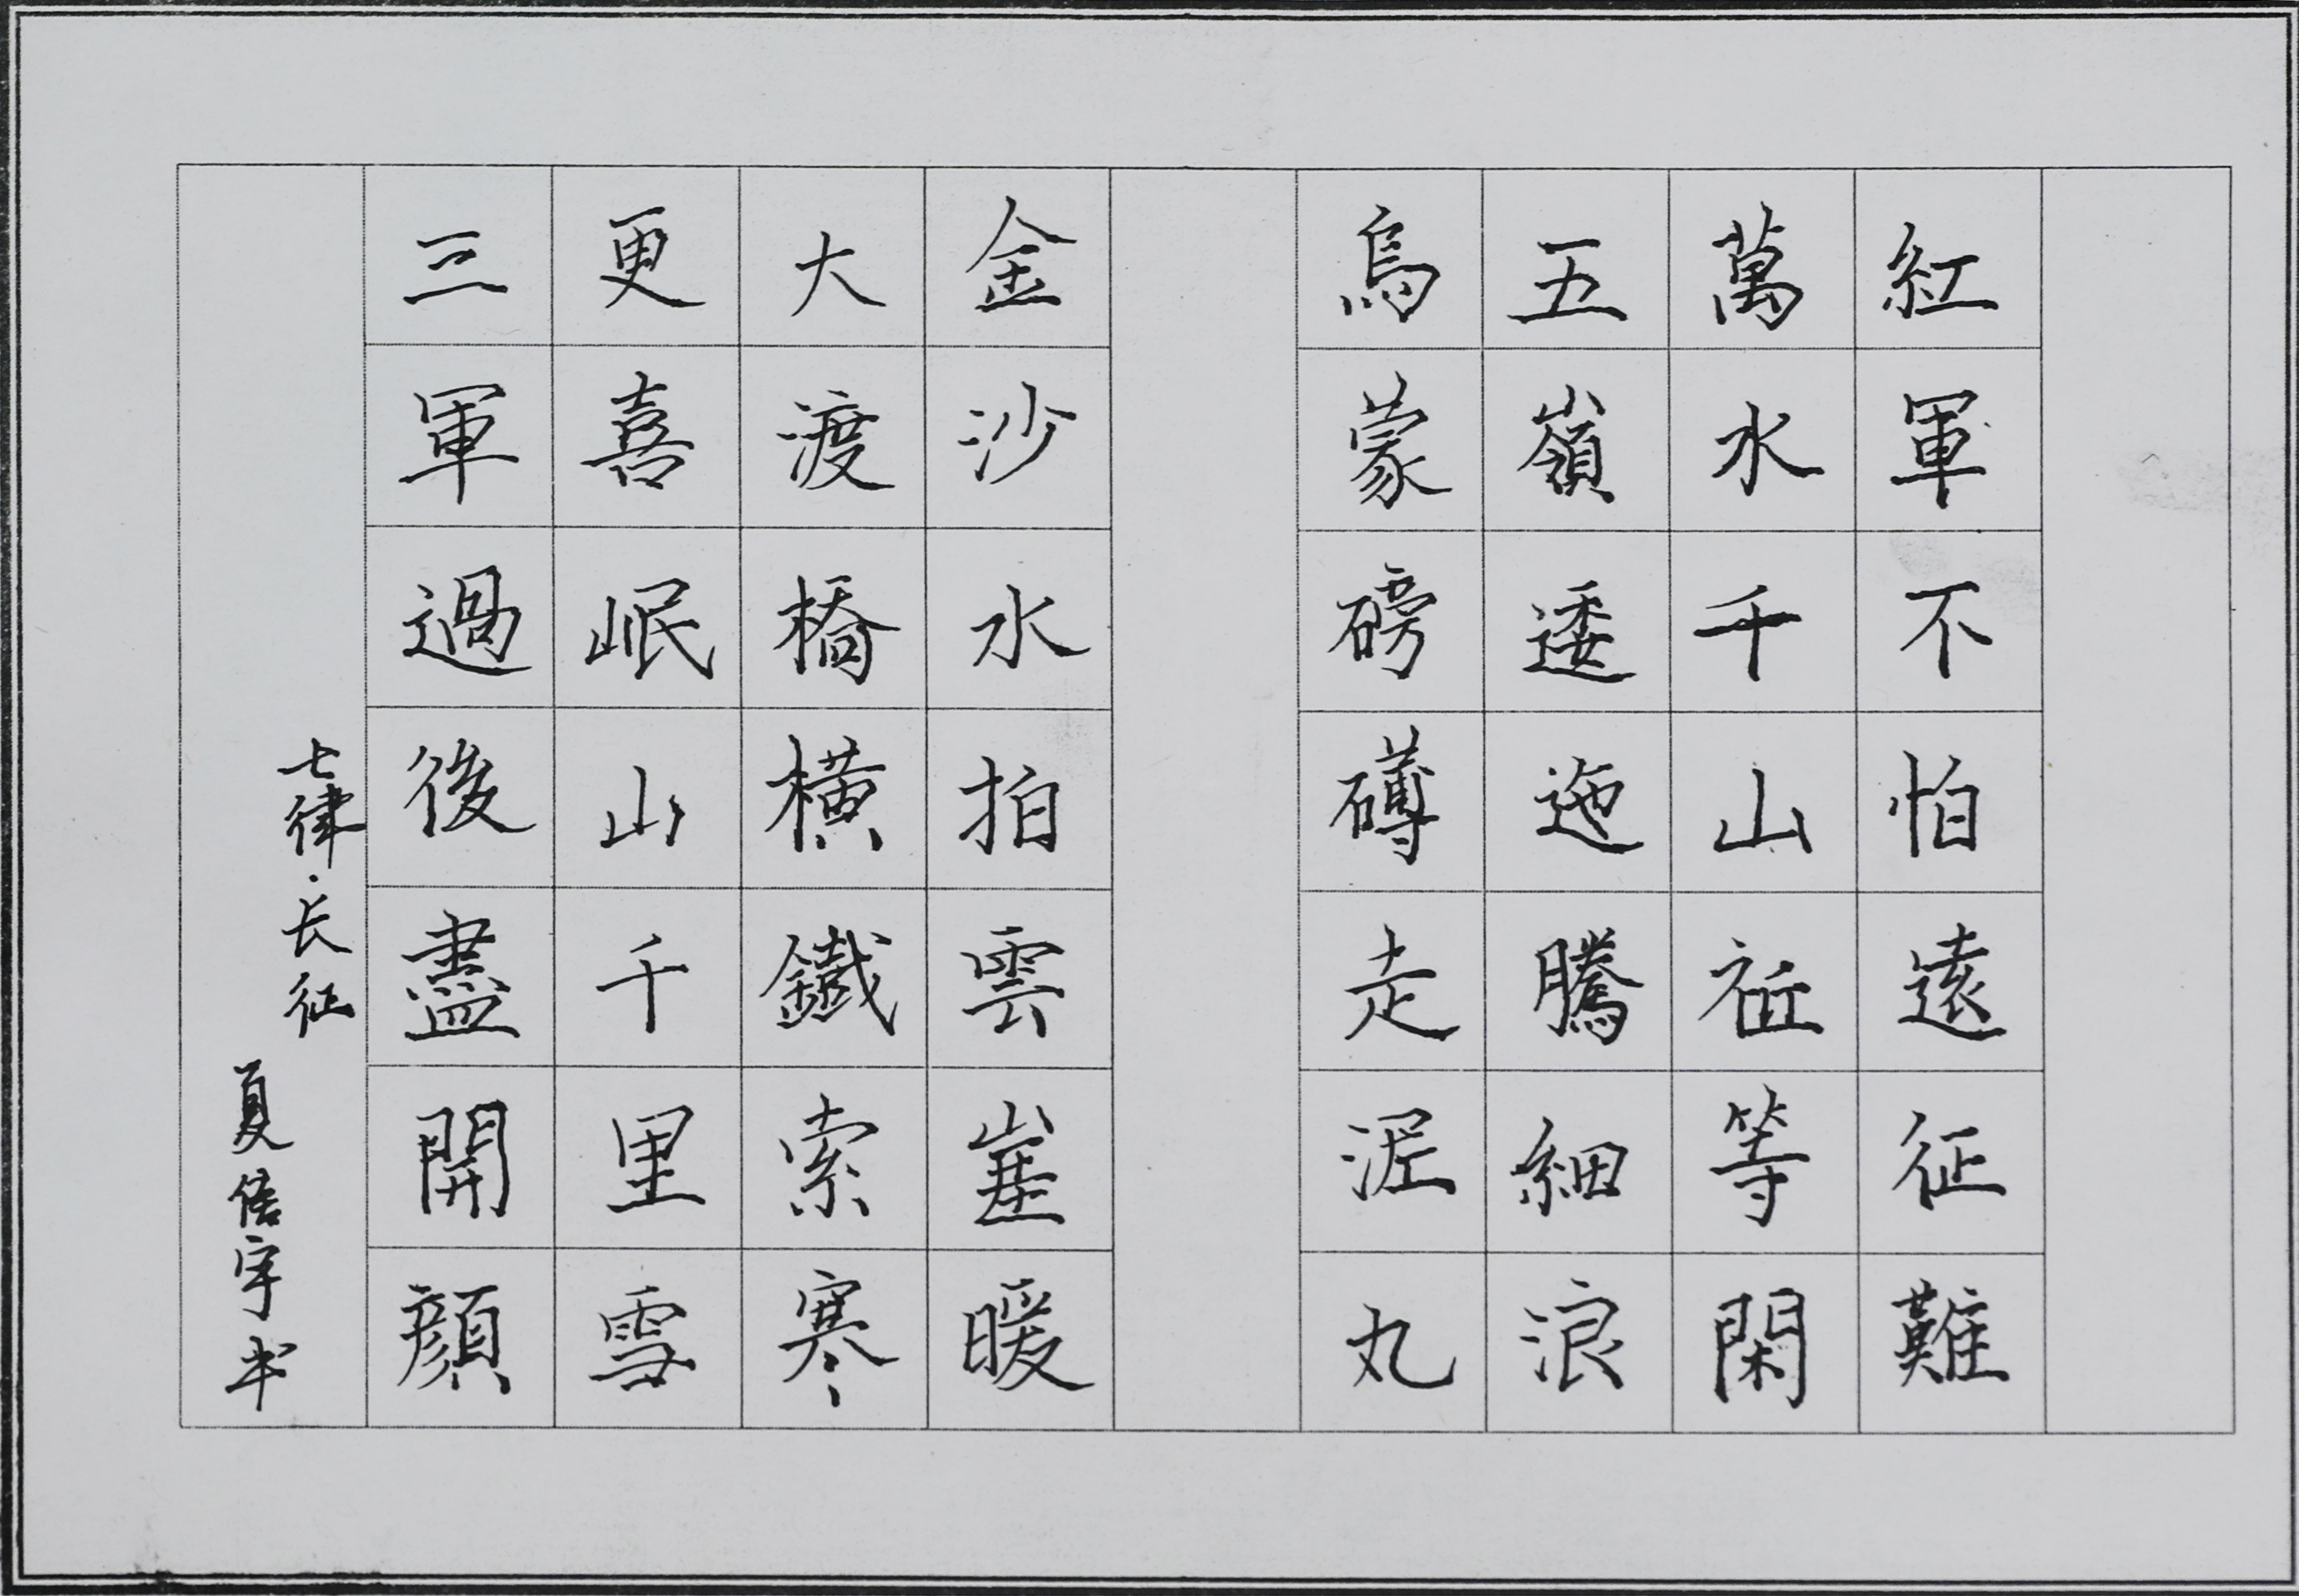 紅軍不怕遠征難
萬水千山祗等閑
五嶺逶迤騰細浪
烏蒙磅礡走泥丸
金沙水拍雲崖暖
大渡橋橫鐵索寒
更喜岷山千里雪
三軍過後盡開顏
七律·长征
夏宇书